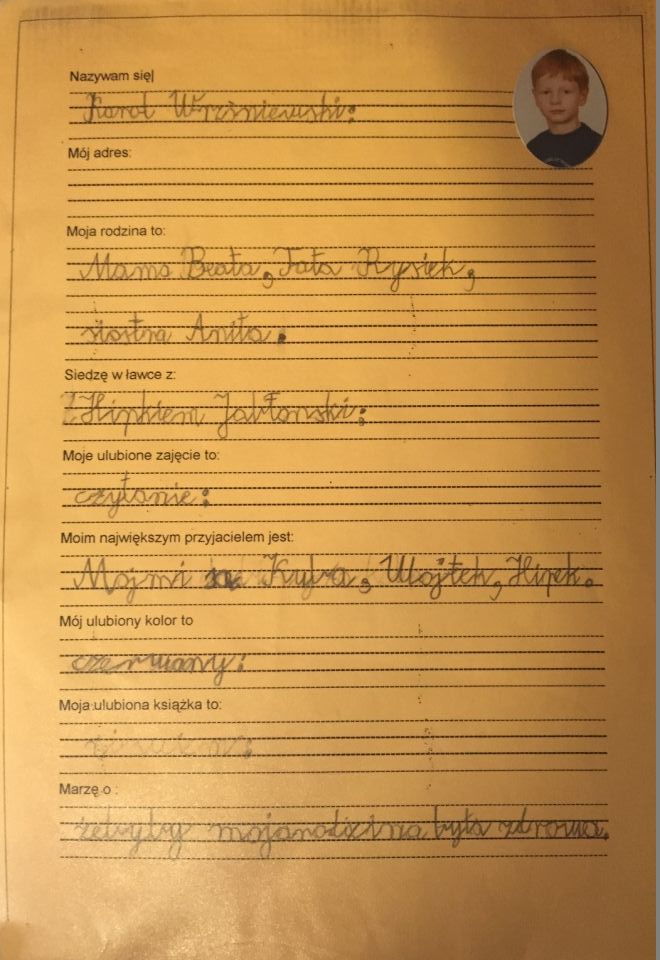 Nazywam się
Karol Wrześniewski:
Mój adres:
Moja rodzina to:
Mama Beata, Tata Rysiek,
siostra Anita.
Siedzę w ławce z:
Z Hipkiem Jabłonski:
Moje ulubione zajęcie to:
czytanie:
Moim największym przyjacielem jest:
Mojmi są Kuba, Wojtek, Hipek.
Mój ulubiony kolor to
czerwany:
Moja ulubiona książka to:
Marzę o :
żetryby mojarodzina była zdrowa.